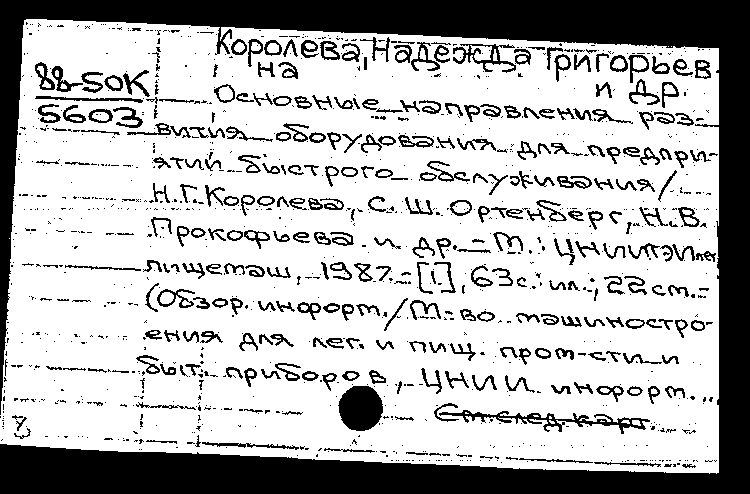 Королева, Надежда Григорьев-
на
и др.
88-5ОК
5603
Основные направления раз-
вития оборудования для предпри-
ятий быстрого обслуживания /
Н.Г. Королева, С. Ш. Ортенберг, Н.В.
Прокофьева и др. - М.: ЦНИИТЭИлег
пищемаш, 1987. - [1], 63 с.: ил.; 22 см. -
(Обзор. информ. / М-во машиностро-
ения для лег. и пищ. пром-сти и
быт. приборов, ЦНИИ информ. ...
См. след. карт.